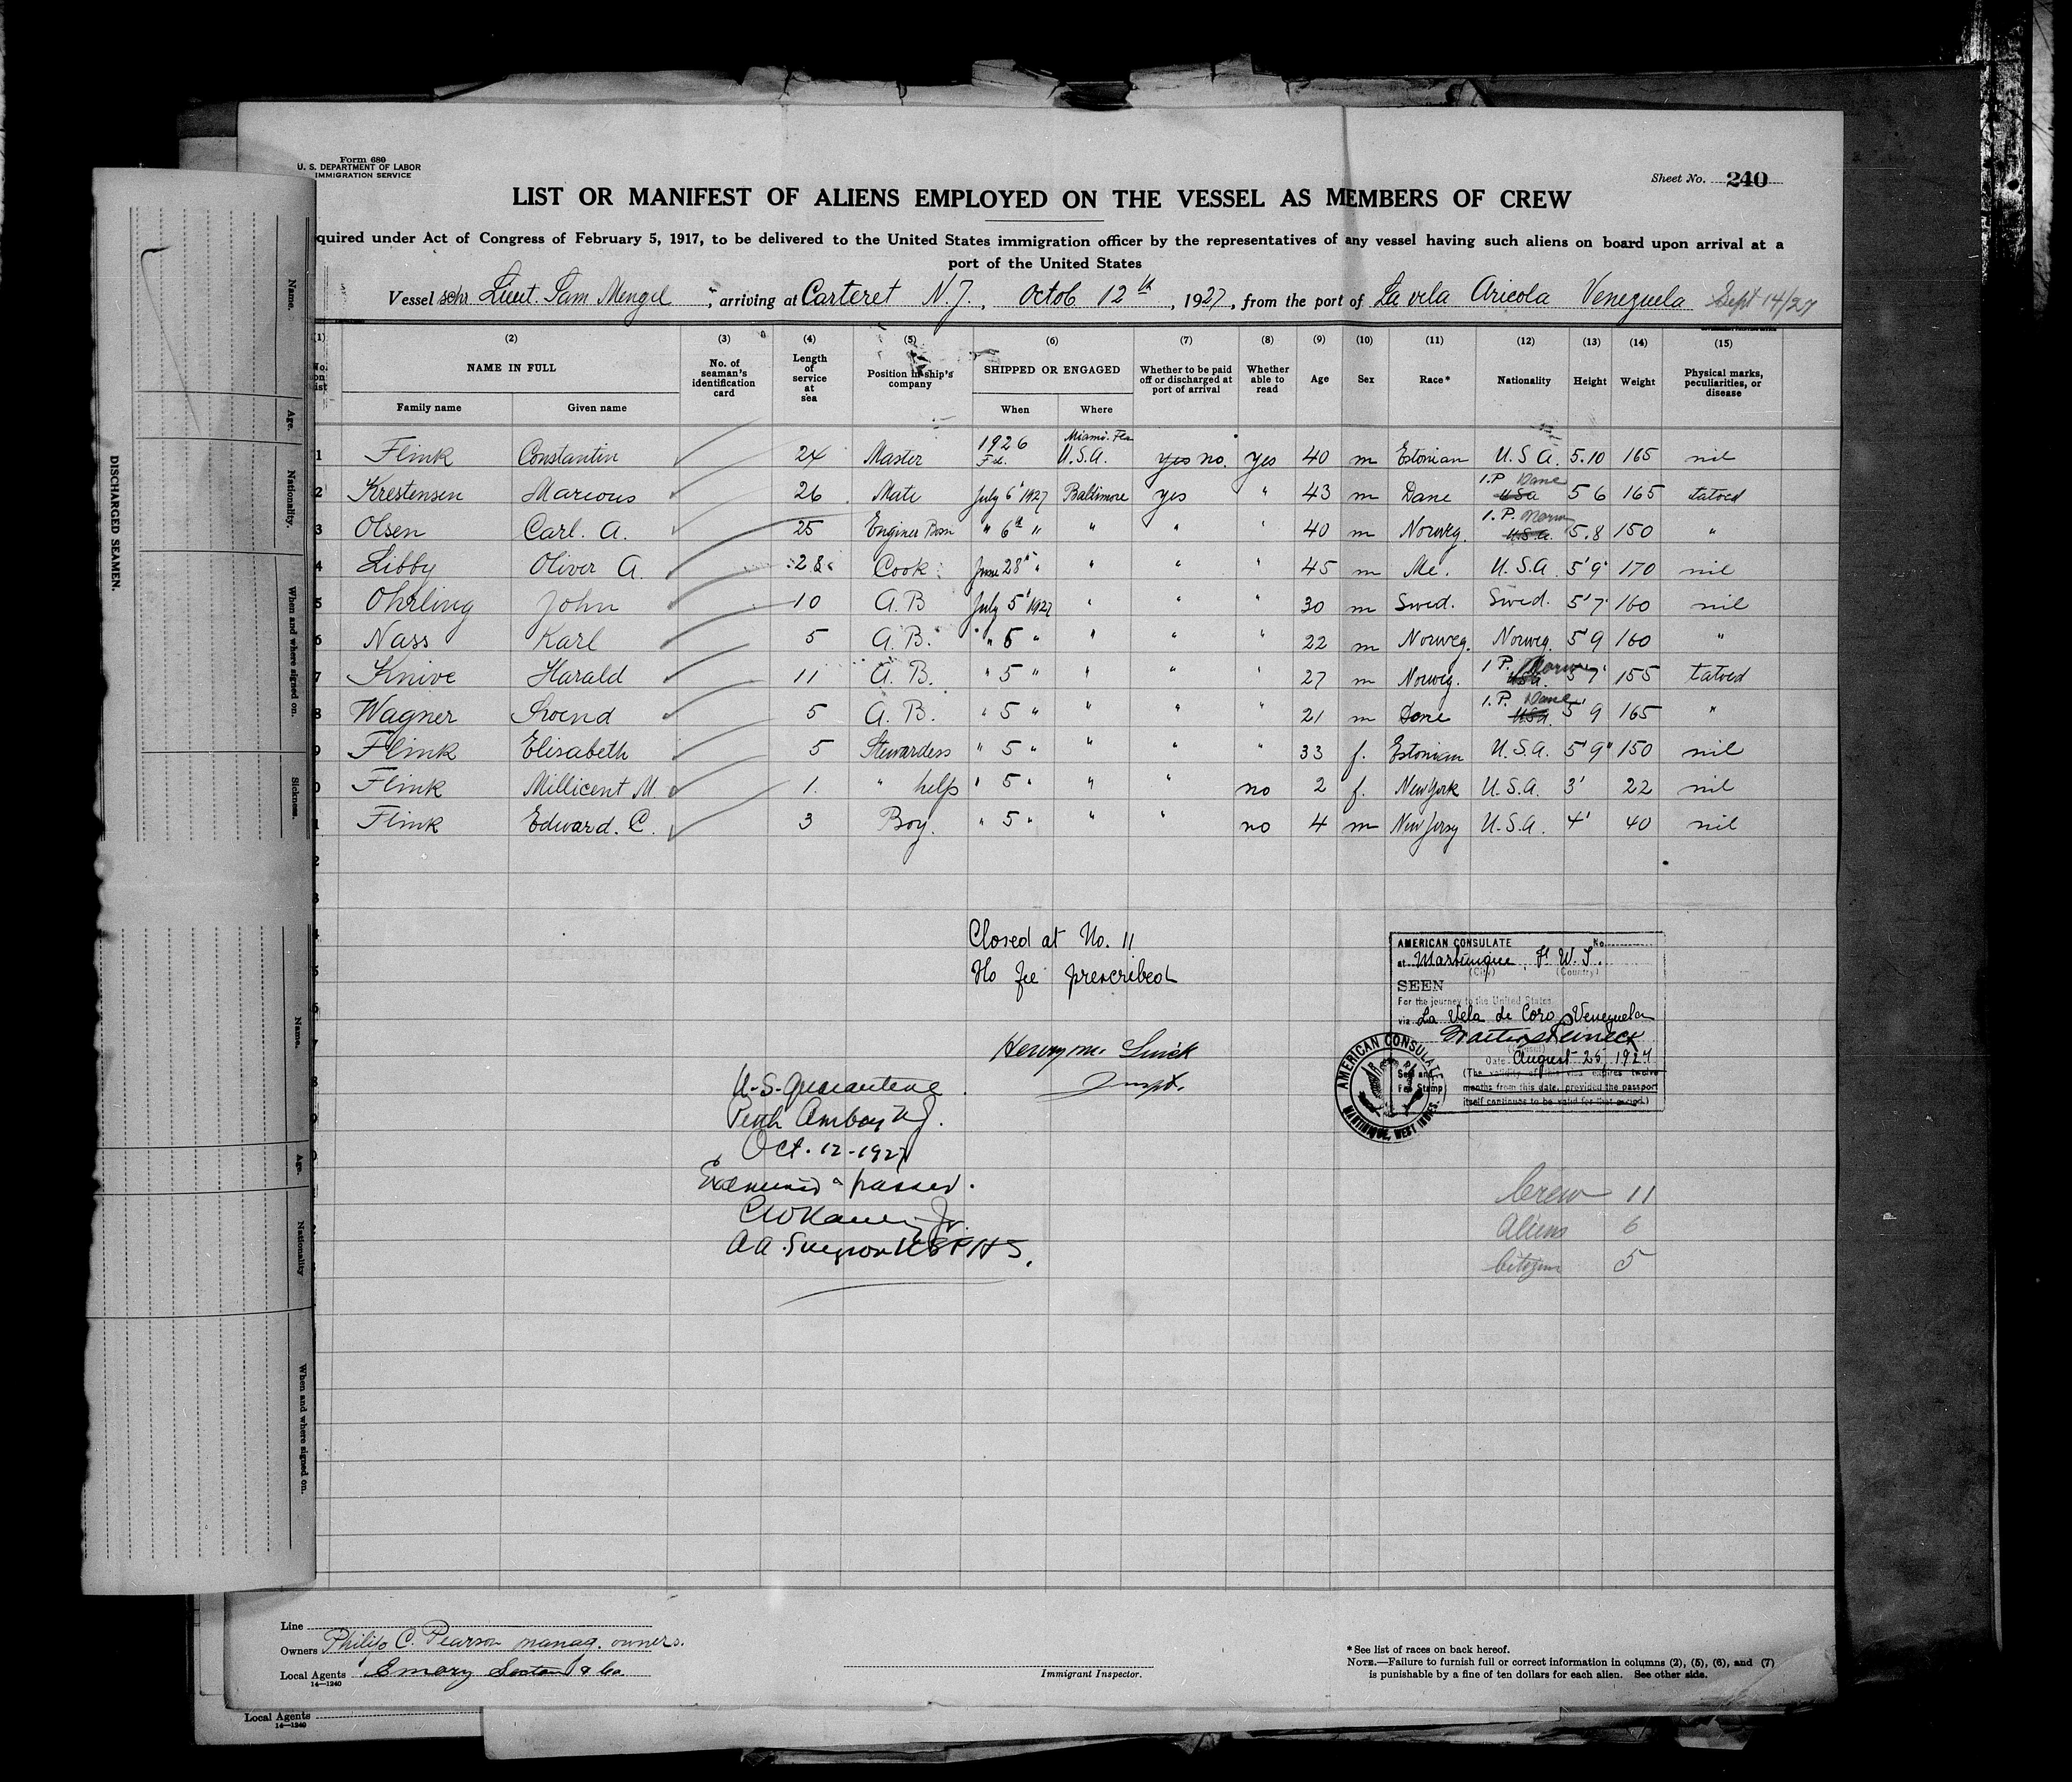 Form 680
U. S. DEPARTMENT OF LABOR
IMMIGRATION SERVICE
Sheet No. 240
LIST OR MANIFEST OF ALIENS EMPLOYED ON THE VESSEL AS MEMBERS OF CREW
quired under Act of Congress of February 5, 1917, to be delivered to the United States immigration officer by the representatives of any vessel having such aliens on board upon arrival at a
port of the United States
Vessel schr Lieut. Sam Mengel, arriving at Carteret N.J., Octob 12th, 1927, from the port of La vela Aricola Venezuela Sept 14/27
(1) (2) (3) (4) (5) (6) (7) (8) (9) (10) (11) (12) (13) (14) (15)
No. on list NAME IN FULL No. of seaman's identification card Length of service at sea Position in ship's company SHIPPED OR ENGAGED Whether to be paid off or discharged at port of arrival Whether able to read Age Sex Race* Nationality Height Weight Physical marks, peculiarities, or disease
Family name Given name When Where
1 Flink Constantin 24 Master 1926 Miami. Fla U.S.A. yes no. yes 40 m Estonian U.S.A. 5.10 165 nil
2 Krestensen Marcous 26 Mate July 6' 1927 Baltimore yes " 43 m Dane 1.P Dane USA 5 6 165 tatoed
3 Olsen Carl. A. 25 Enginer Bosn " 6th " " " " 40 m Norweg. 1.P. Norw U.S.a. 5.8 150 "
4 Libby Oliver A. 28 Cook June 28" " " " " 45 m Me. U.S.A 5'9" 170 nil
5 Ohrling John 10 A.B July 5' 1927 " " " 30 m Swed. Swed. 5'7" 160 nil
6 Nass Karl 5 A.B. " 6 " " " " 22 m Norweg. Norweg. 5'9 160 "
7 Knive Harald 11 A.B. " 5 " " " " 27 m Norweg. 1 P. Norw USA. 5 7" 155 tatoed
8 Wagner Svend 5 A.B. " 5 " " " " 21 m Dane 1.P. Dane USA. 5'9 165 "
9 Flink Elisabeth 5 Stewardess " 5 " " " " 33 f. Estonian U.S.A. 5'9" 150 nil
0 Flink Millicent M 1. " help " 5 " " " no 2 f. New York U.S.A. 3' 22 nil
1 Flink Edward. C. 3 Boy. " 5 " " " no 4 m New Jersy U.S.A. 4' 40 nil
2
3
4
5
6
7
8
9
Closed at No. 11
No fee prescribed
AMERICAN CONSULATE No.
at Martinique, F. W. I.
(City) (Country)
SEEN
For the journey to the United States
via La Vela de Coro, Venezuela
(Consul)
Date August 25, 1927
(The validity of this visa expires twelve
months from this date, provided the passport
itself continues to be valid for that period.)
AMERICAN CONSULATE
Seal and
Fee Stamp
MARTINIQUE, WEST INDIES.
Inspt.
U.S. Quarantine
Perth Amboy N.J.
Oct. 12-1927
Examined & passed.
A.A. Surgeon USPHS.
Crew 11
Aliens 6
Citizen 5
Line
Owners Philip C. Pearson manag. owners.
Local Agents Emory Sexton & Co.
14—1240
Immigrant Inspector.
* See list of races on back hereof.
NOTE.—Failure to furnish full or correct information in columns (2), (5), (6), and (7)
is punishable by a fine of ten dollars for each alien. See other side.
Local Agents
14—1240
DISCHARGED SEAMEN.
Name.
Age.
Nationality.
When and where signed on.
Sickness.
Name.
Age.
Nationality
When and where signed on.